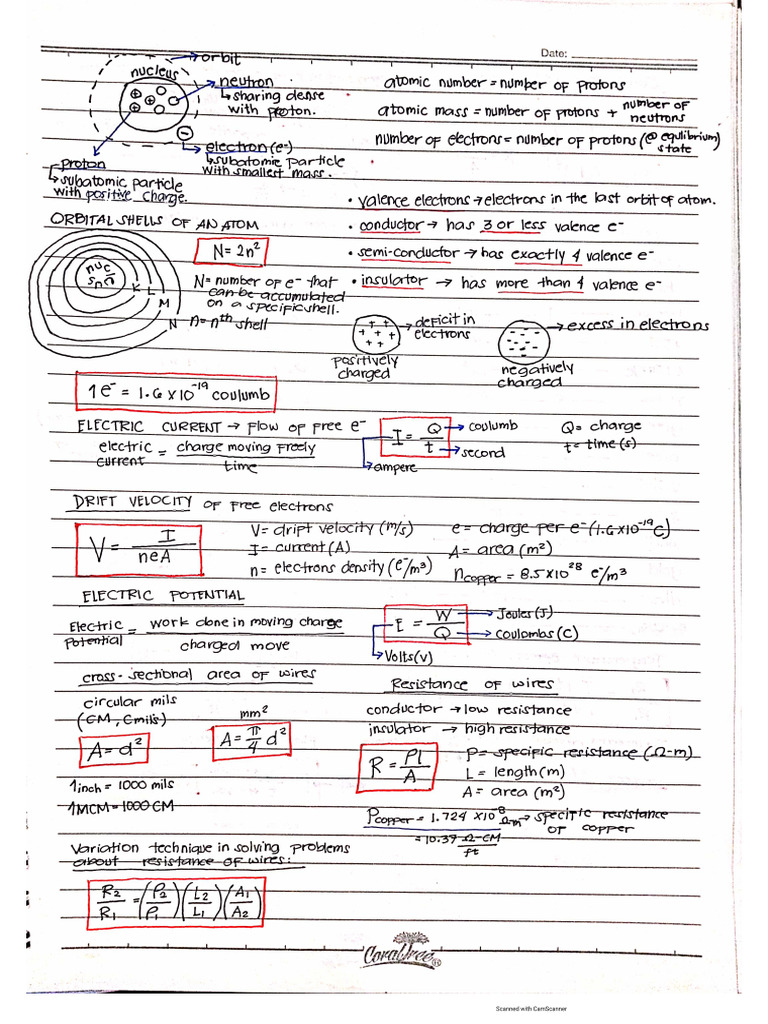 Date:
orbit
nucleus
neutron
↳ sharing dense
with proton.
electron (e-)
↳ subatomic particle
with smallest mass.
proton
↳ subatomic particle
with positive charge.
atomic number = number of protons
atomic mass = number of protons + number of neutrons
number of electrons = number of protons (@ equilibrium) state
• valence electrons → electrons in the last orbit of atom.
• conductor → has 3 or less valence e-
• semi-conductor → has exactly 4 valence e-
• insulator → has more than 4 valence e-
ORBITAL SHELLS OF AN ATOM
K L M N
N = 2n²
N = number of e- that
can be accumulated
on a specific shell.
n = nth shell
deficit in
electrons
positively
charged
excess in electrons
negatively
charged
1 e- = 1.6 x 10⁻¹⁹ coulumb
ELECTRIC CURRENT → flow of free e-
electric current = charge moving freely / time
I = Q / t
coulumb
second
ampere
Q = charge
t = time (s)
DRIFT VELOCITY of free electrons
V = I / neA
V = drift velocity (m/s)
I = current (A)
n = electrons density (e-/m³)
e = charge per e- (1.6x10⁻¹⁹ C)
A = area (m²)
ncopper = 8.5x10²⁸ e-/m³
ELECTRIC POTENTIAL
Electric Potential = work done in moving charge / charged move
E = W / Q
Joules (J)
coulombs (C)
Volts (v)
cross-sectional area of wires
circular mils
(CM, Cmils)
A = d²
mm²
A = π/4 d²
1 inch = 1000 mils
1 MCM = 1000 CM
Resistance of wires
conductor → low resistance
insulator → high resistance
R = ρl / A
ρ = specific resistance (Ω-m)
L = length (m)
A = area (m²)
ρcopper = 1.724 x10⁻⁸ Ωm → specific resistance
of copper
= 10.37 Ω-CM / ft
Variation technique in solving problems
about resistance of wires:
R2/R1 = (ρ2/ρ1)(L2/L1)(A1/A2)
CoralTree
Scanned with CamScanner